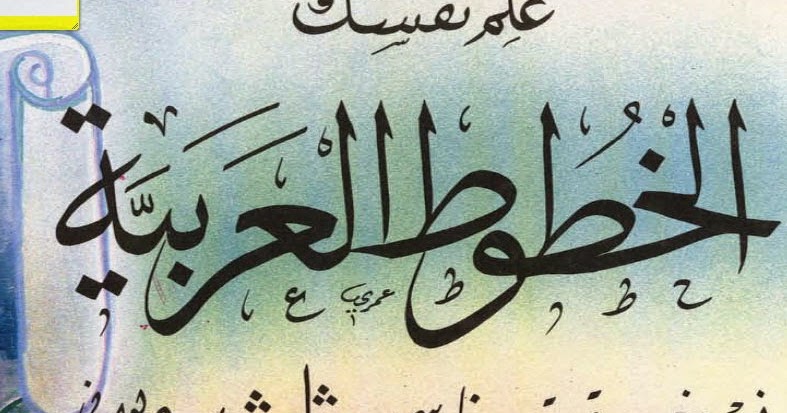 علم نفسك
الخطوط العربيَّة
عمري